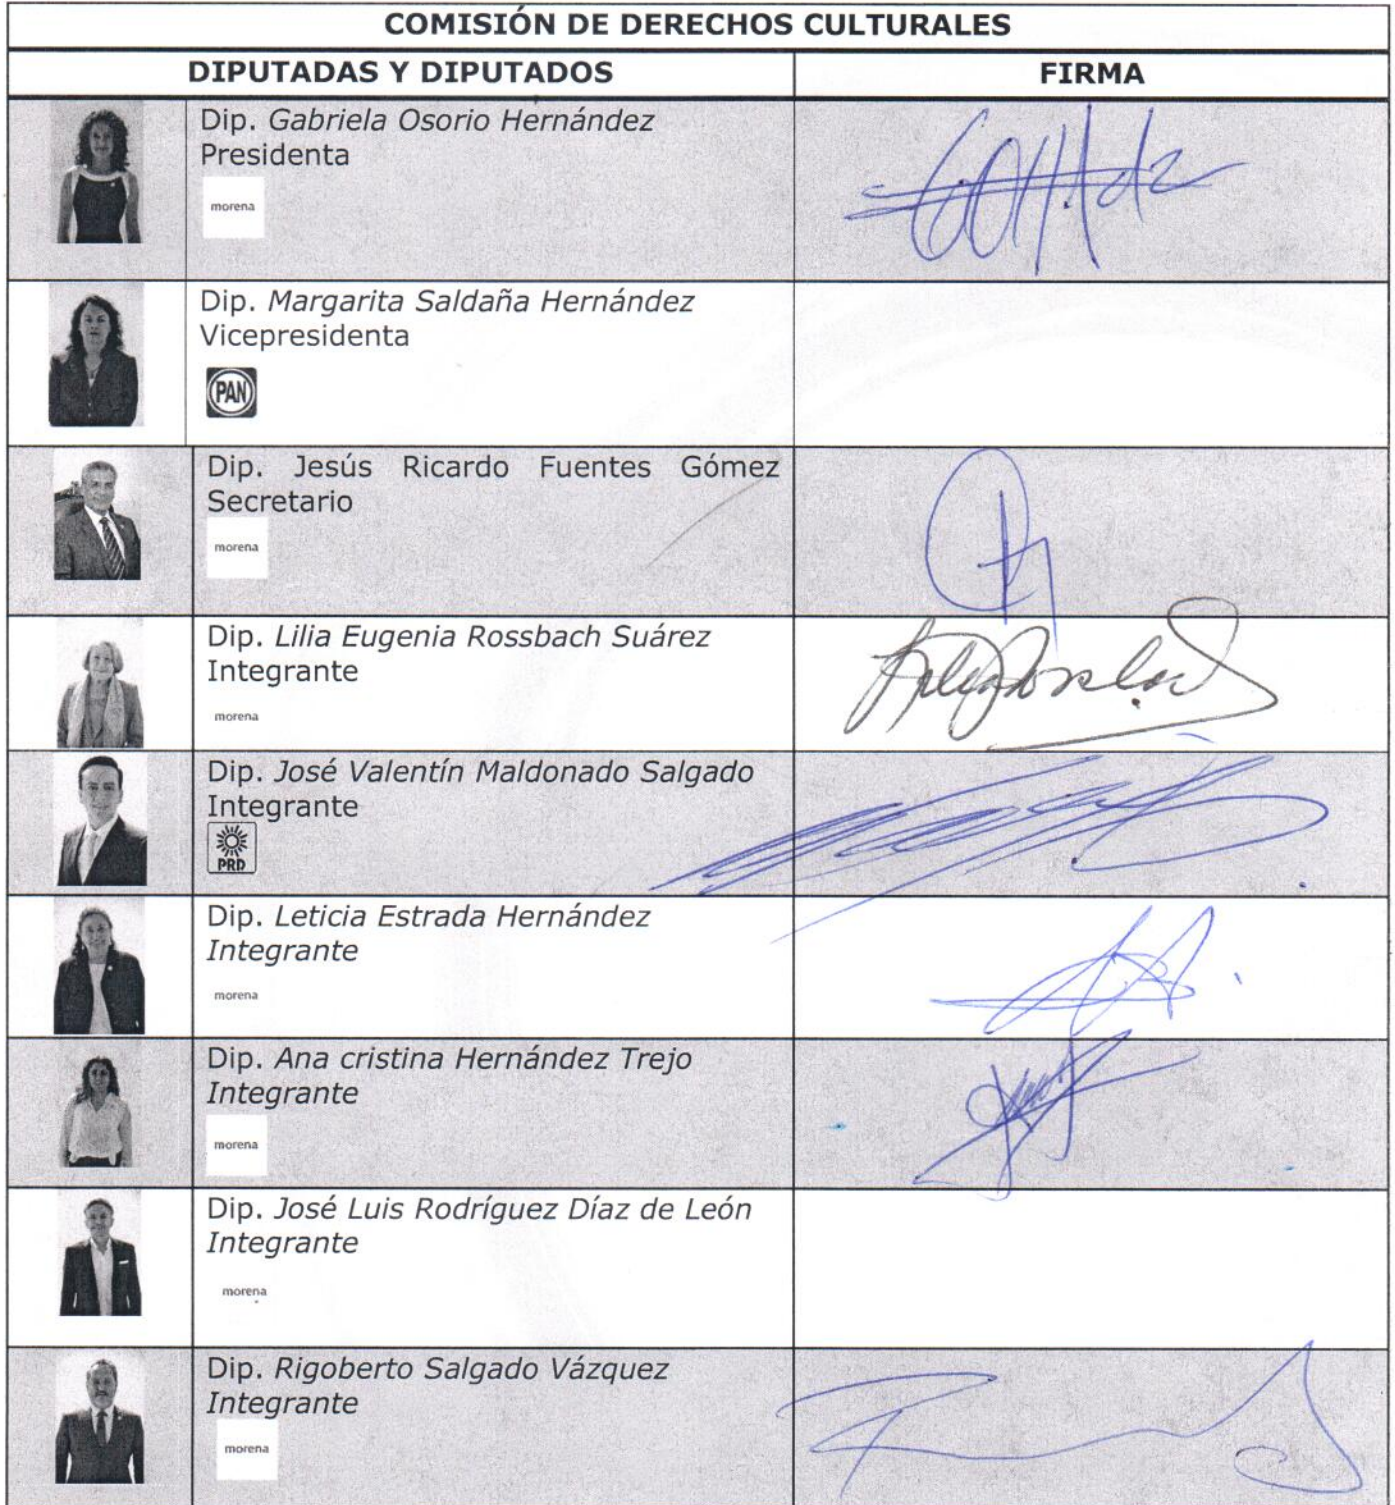 COMISIÓN DE DERECHOS CULTURALES
DIPUTADAS Y DIPUTADOS
FIRMA
Dip. Gabriela Osorio Hernández
Presidenta
morena
Dip. Margarita Saldaña Hernández
Vicepresidenta
PAN
Dip. Jesús Ricardo Fuentes Gómez
Secretario
morena
Dip. Lilia Eugenia Rossbach Suárez
Integrante
morena
Dip. José Valentín Maldonado Salgado
Integrante
PRD
Dip. Leticia Estrada Hernández
Integrante
morena
Dip. Ana cristina Hernández Trejo
Integrante
morena
Dip. José Luis Rodríguez Díaz de León
Integrante
morena
Dip. Rigoberto Salgado Vázquez
Integrante
morena